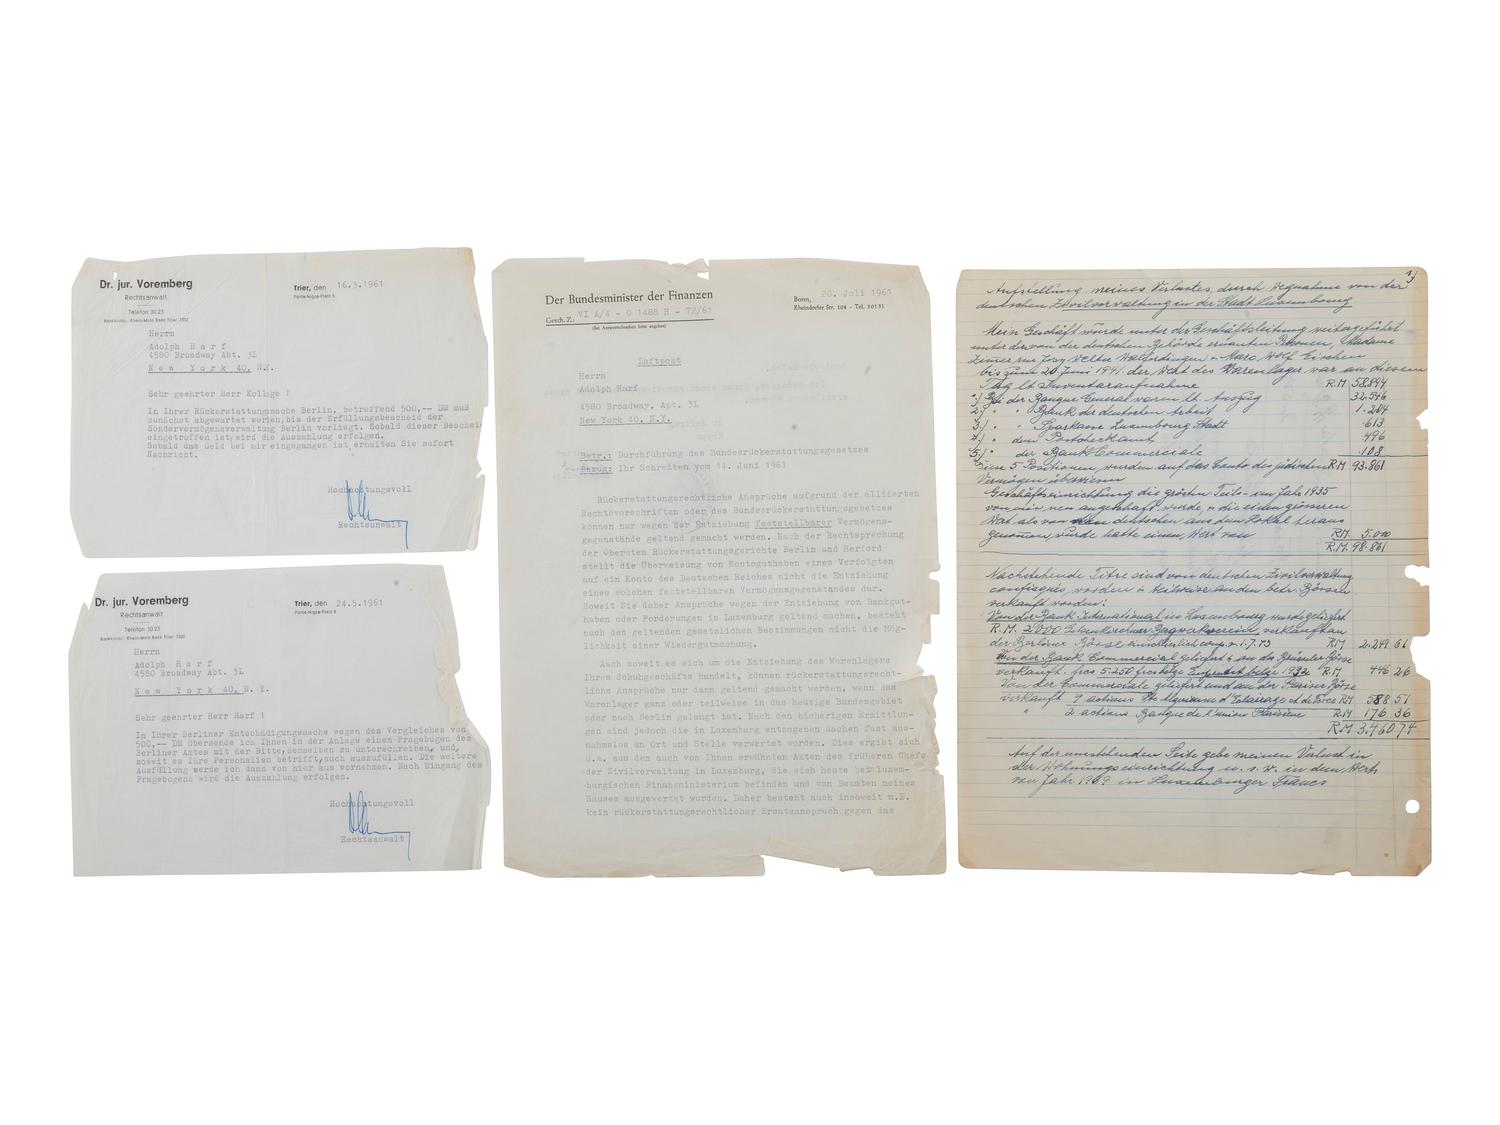 Dr. jur. Voremberg
Rechtsanwalt
Telefon 30 23
Trier, den 16.3.1961
Porta-Nigra-Platz 5
Herrn
Adolph H a r f
4580 Broadway Abt. 3L
New York 40, N.Y.
Sehr geehrter Herr Kollege !
In Ihrer Rückerstattungssache Berlin, betreffend 500,-- DM muß
zunächst abgewartet werden, bis der Erfüllungsbescheid der
Sondervermögensverwaltung Berlin vorliegt. Sobald dieser Beschei
eingetroffen ist, wird die Auszahlung erfolgen.
Sobald das Geld bei mir eingegangen ist erhalten Sie sofort
Nachricht.
Hochachtungsvoll
Rechtsanwalt
Dr. jur. Voremberg
Rechtsanwalt
Telefon 30 23
Trier, den 24.5.1961
Porta-Nigra-Platz 5
Herrn
Adolph H a r f
4580 Broadway Abt. 3L
New York 40, N. Y.
Sehr geehrter Herr Harf !
In Ihrer Berliner Entschädigungssache wegen des Vergleiches von
500,-- DM übersende ich Ihnen in der Anlage einen Fragebogen des
Berliner Amtes mit der Bitte, denselben zu unterschreiben, und,
soweit es Ihre Personalien betrifft, auch auszufüllen. Die weitere
Ausfüllung werde ich dann von hier aus vornehmen. Nach Eingang des
Fragebogens wird die Auszahlung erfolgen.
Hochachtungsvoll
Rechtsanwalt
Der Bundesminister der Finanzen
Gesch. Z.: VI A/4 - O 1488 H - 72/61
(Bei Antwortschreiben bitte angeben)
Bonn, 20. Juli 1961
Rheindorfer Str. 108 - Tel. 30131
Luftpost
Herrn
Adolph Harf
4580 Broadway, Apt. 3L
New York 40, N.Y.
Betr.: Durchführung des Bundesrückerstattungsgesetzes
Bezug: Ihr Schreiben vom 14. Juni 1961
Rückerstattungsrechtliche Ansprüche aufgrund der alliierten
Rechtsvorschriften oder des Bundesrückerstattungsgesetzes
können nur wegen der Entziehung feststellbarer Vermögens-
gegenstände geltend gemacht werden. Nach der Rechtsprechung
der Obersten Rückerstattungsgerichte Berlin und Herford
stellt die Überweisung von Kontoguthaben eines Verfolgten
auf ein Konto des Deutschen Reiches nicht die Entziehung
eines solchen feststellbaren Vermögensgegenstandes dar.
Soweit Sie daher Ansprüche wegen der Entziehung von Bankgut-
haben oder Forderungen in Luxemburg geltend machen, besteht
nach den geltenden gesetzlichen Bestimmungen nicht die Mög-
lichkeit einer Wiedergutmachung.
Auch soweit es sich um die Entziehung des Warenlagers
Ihres Schuhgeschäfts handelt, können rückerstattungsrecht-
liche Ansprüche nur dann geltend gemacht werden, wenn das
Warenlager ganz oder teilweise in das heutige Bundesgebiet
oder nach Berlin gelangt ist. Nach den bisherigen Ermittlun-
gen sind jedoch die in Luxemburg entzogenen Sachen fast aus-
nahmslos an Ort und Stelle verwertet worden. Dies ergibt sich
u.a. aus den auch von Ihnen erwähnten Akten des früheren Chefs
der Zivilverwaltung in Luxemburg, die sich heute beim luxem-
burgischen Finanzministerium befinden und von Beamten meines
Hauses ausgewertet wurden. Daher besteht auch insoweit m.E.
kein rückerstattungsrechtlicher Ersatzanspruch gegen das
1)
Aufstellung meines Verlustes, durch Wegnahme von der
deutschen Zivilverwaltung in der Stadt Luxembourg
Mein Geschäft wurde unter der Geschäftsleitung weitergeführt
unter der von der deutschen Behörde ernannten Personen, Madame
Zimmer rue Josy Welter Walferdingen + Marc. Wolf Eischen
bis zum 20 Juni 1941. der Wert des Warenlager war an diesem
Tag lt. Inventaraufnahme R.M 58.894
1) Bei der Banque General waren lt. Auszug 32.546
2) " " Bank der deutschen Arbeit 1.204
3) " " Sparkasse Luxembourg Stadt 613
4) " dem Postcheckamt 496
5) " der Bank Commerciale 108
Diese 5 Positionen, wurden auf das Conto des jüdischen RM 93.861
Vermögen überwiesen
Geschäftseinrichtung die grösten Teils im Jahr 1935
von mir neu angeschaft wurde, + die einen grösseren
Wert als von den deutschen aus dem Lokal heraus
genommen, wurde hatte einen, Wert von RM. 5.000
R.M. 98.861
Nachstehende Titre sind von deutschen Zivilverwaltung
confisqué, worden + teilweise an den betr. Börsen
verkauft worden:
Von der Bank International in Luxembourg wurde geliefert
R.M. 2000 Gelsenkirchner Bergwerkverein, verkauft an
der Berliner Börse einschlieslich coup. v. 1.7.43 RM 2.249 61
Von der Bank Commercial geliefert + an der Brüssler Börse
verkauft. frcs 5.250 frcs belge 1932 R.M 446 26
Von der Commerciale geliefert und an der Pariser Börse
verkauft 7 actions d'Eclairage et de Force RM 588 51
" 2 actions Banque de l'union Parisienne RM 176 36
RM 3.460 74
Auf der umstehenden Seite gebe meinen Verlust in
der Wohnungseinrichtung u. s. w. in dem Wert
vor Jahr 1939 in Luxemburger Francs